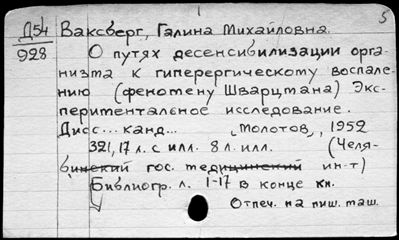 5
Д54 Ваксберг, Галина Михайловна.
928 О путях десенсибилизации орга-
низма к гиперергическому воспале-
нию (феномену Шварцмана) Экс-
периментальное исследование.
Дисс... канд... [Молотов], 1952
321, 17 л. с илл. 8 л. илл. (Челя-
бинский гос. медицинский ин-т)
Библиогр. л. 1-17 в конце кн.
Отпеч. на пиш. маш.